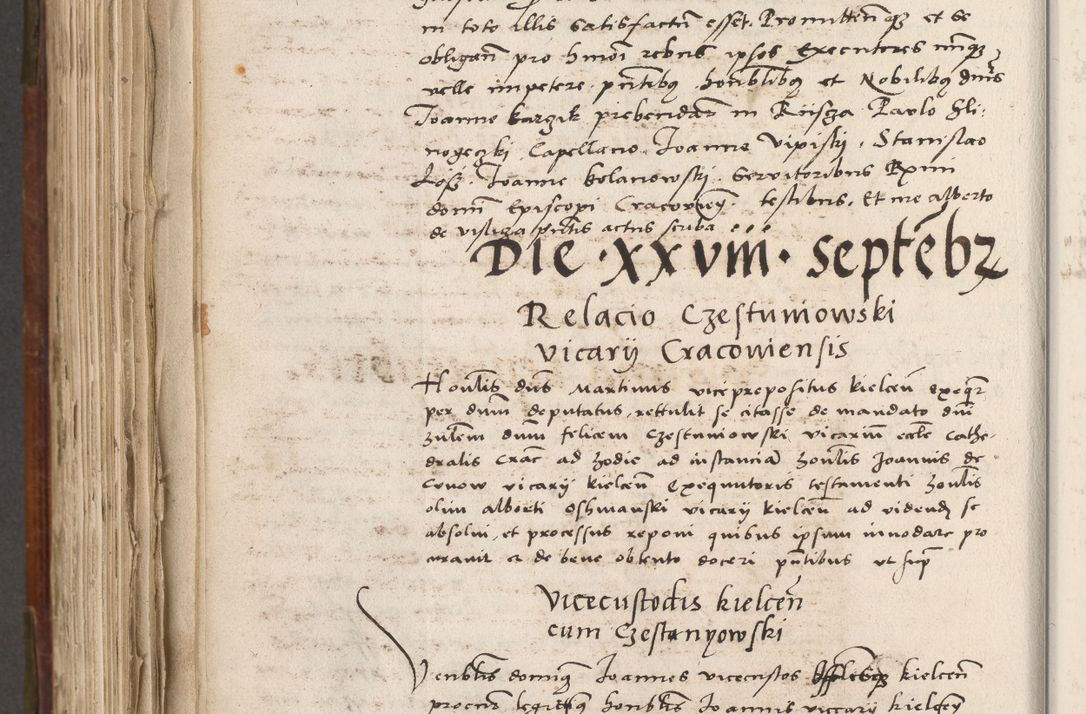 in toto illis satisfactũ esset. Promittenq et se
obligan̄ pro hmōi rebus ipsos Executores nūq̄
velle impetere pn̄tibus honblibus et Nobilibus dnis
Joanne karzik prebendar in Kijsza Paulo Hli
nogeczki Capellano Joanne Vipiski, Stanislao
Joanne bolanowski servitoribus Rmi
domi Episcopi Cracovien. testibus. Et me Alberto
de visliza pn̄tis actus scriba
DIE · XXVIII · Septēbz
Relacio Czestuniowski
vicarij Cracoviensis
Honlis dns Martinus viceprepositus kielcen̄ exeqr
per dnm deputatus, rettulit se citasse de mandato dni
dnm felicem Czestuniowski vicarium eccle Cathe-
dralis Crac ad hodie ad instancia honlis Joannis de
Cunow vicarij kielcen̄ Exequutoris testamenti honlis
olim alberti Oshmanski vicarij kielcen̄ ad videnđ se
absolvi, et processus reponi quibus ipsum innodare pro
curavit et de bene obtento doceri pn̄tibus ut sup
vicecustodis kielcen̄
cum Czestanyowski
Venblis dominq Joannes vicecustos kielcen̄
procur honblis Joannis vicarij kielcen̄